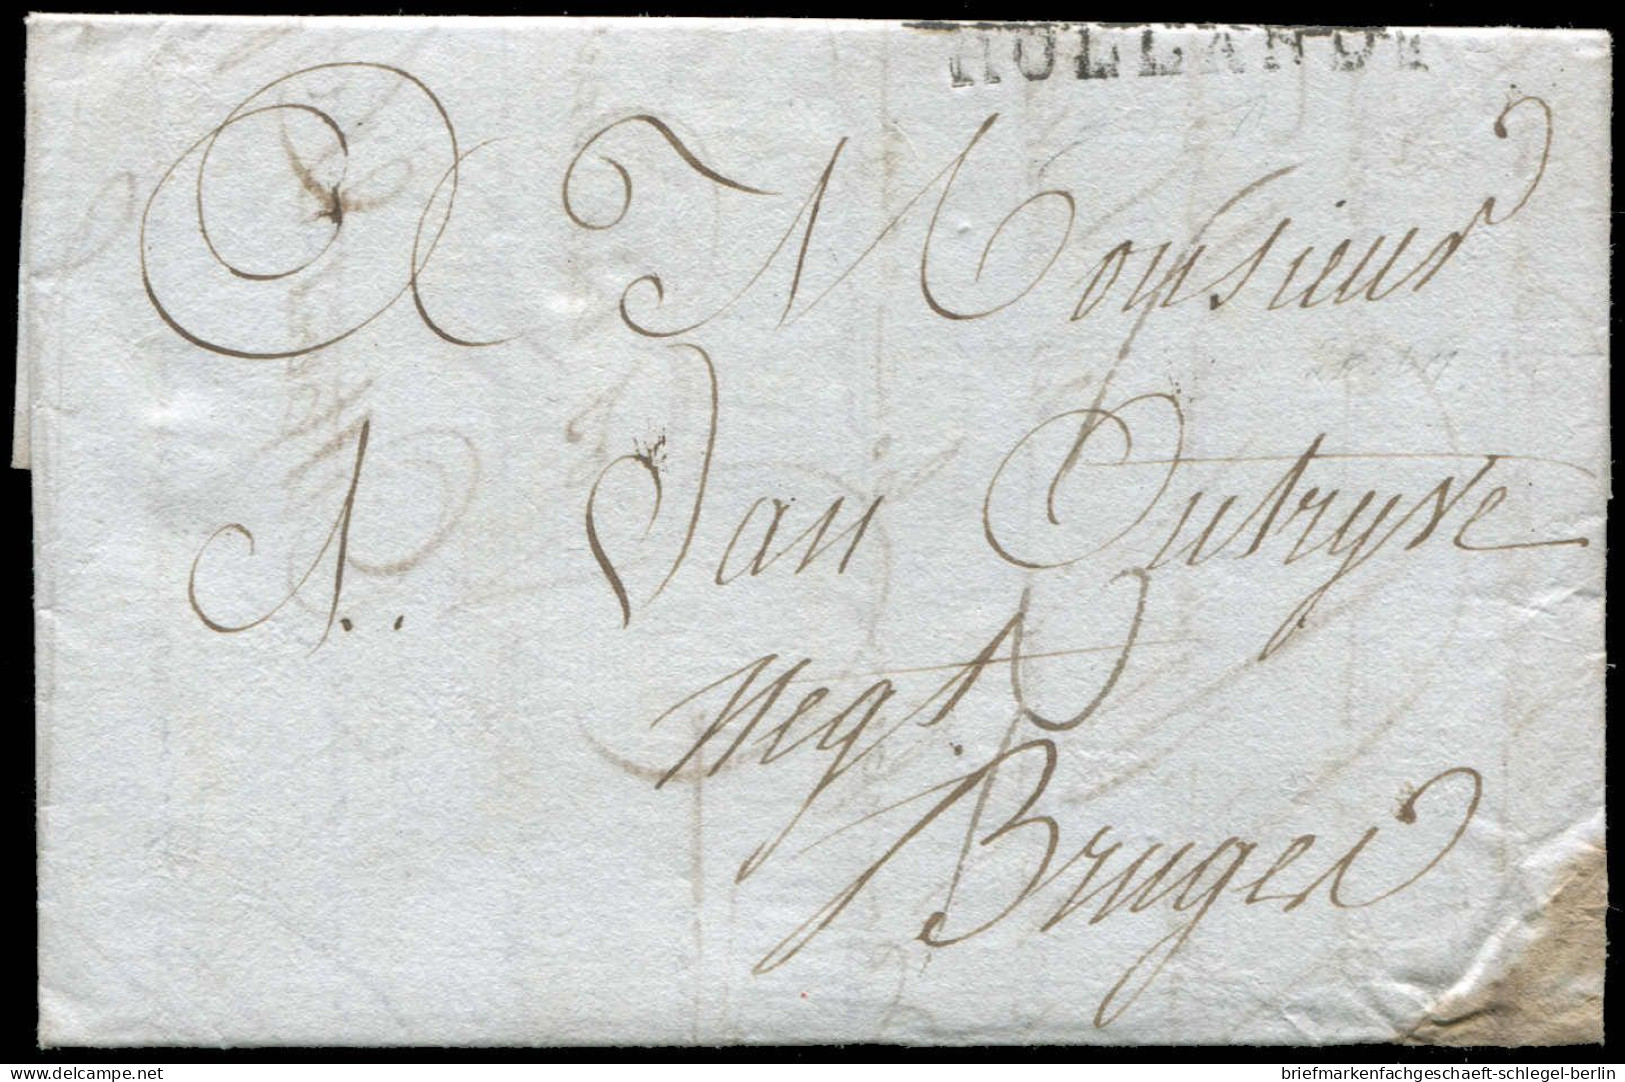 HOLLANDE
A Monsieur
A.. Van Outryve
Negt.
Bruges
delcampe.net
briefmarkenfachgeschaeft-schlegel-berlin